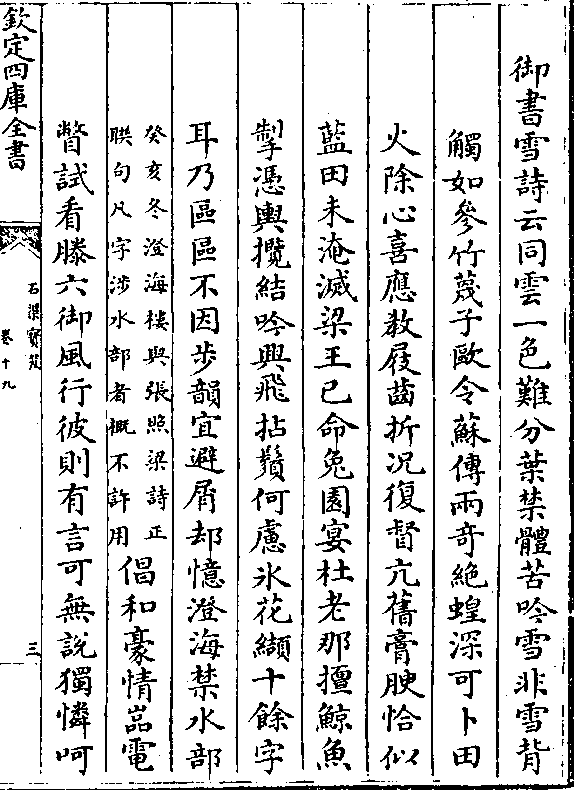 御書雪詩云同雲一色難分葉禁體苦吟雪非雪背
觸如參竹蔑子歐令蘇傳兩奇絶蝗深可卜田
火除心喜應教屐齒折况復督亢舊膏腴恰似
藍田未淹滅梁王已命兔園宴杜老那擅鯨魚
掣憑輿攬結吟興飛拈鬚何慮氷花纈十餘字
耳乃區區不因步韻宜避屑却憶澄海禁水部
癸亥冬澄海樓與張照梁詩正
聨句凡字涉水部者概不許用
倡和豪情喦電
瞥試看滕六御風行彼則有言可無說獨憐呵
欽定四庫全書
石渠寳笈
卷十九
三